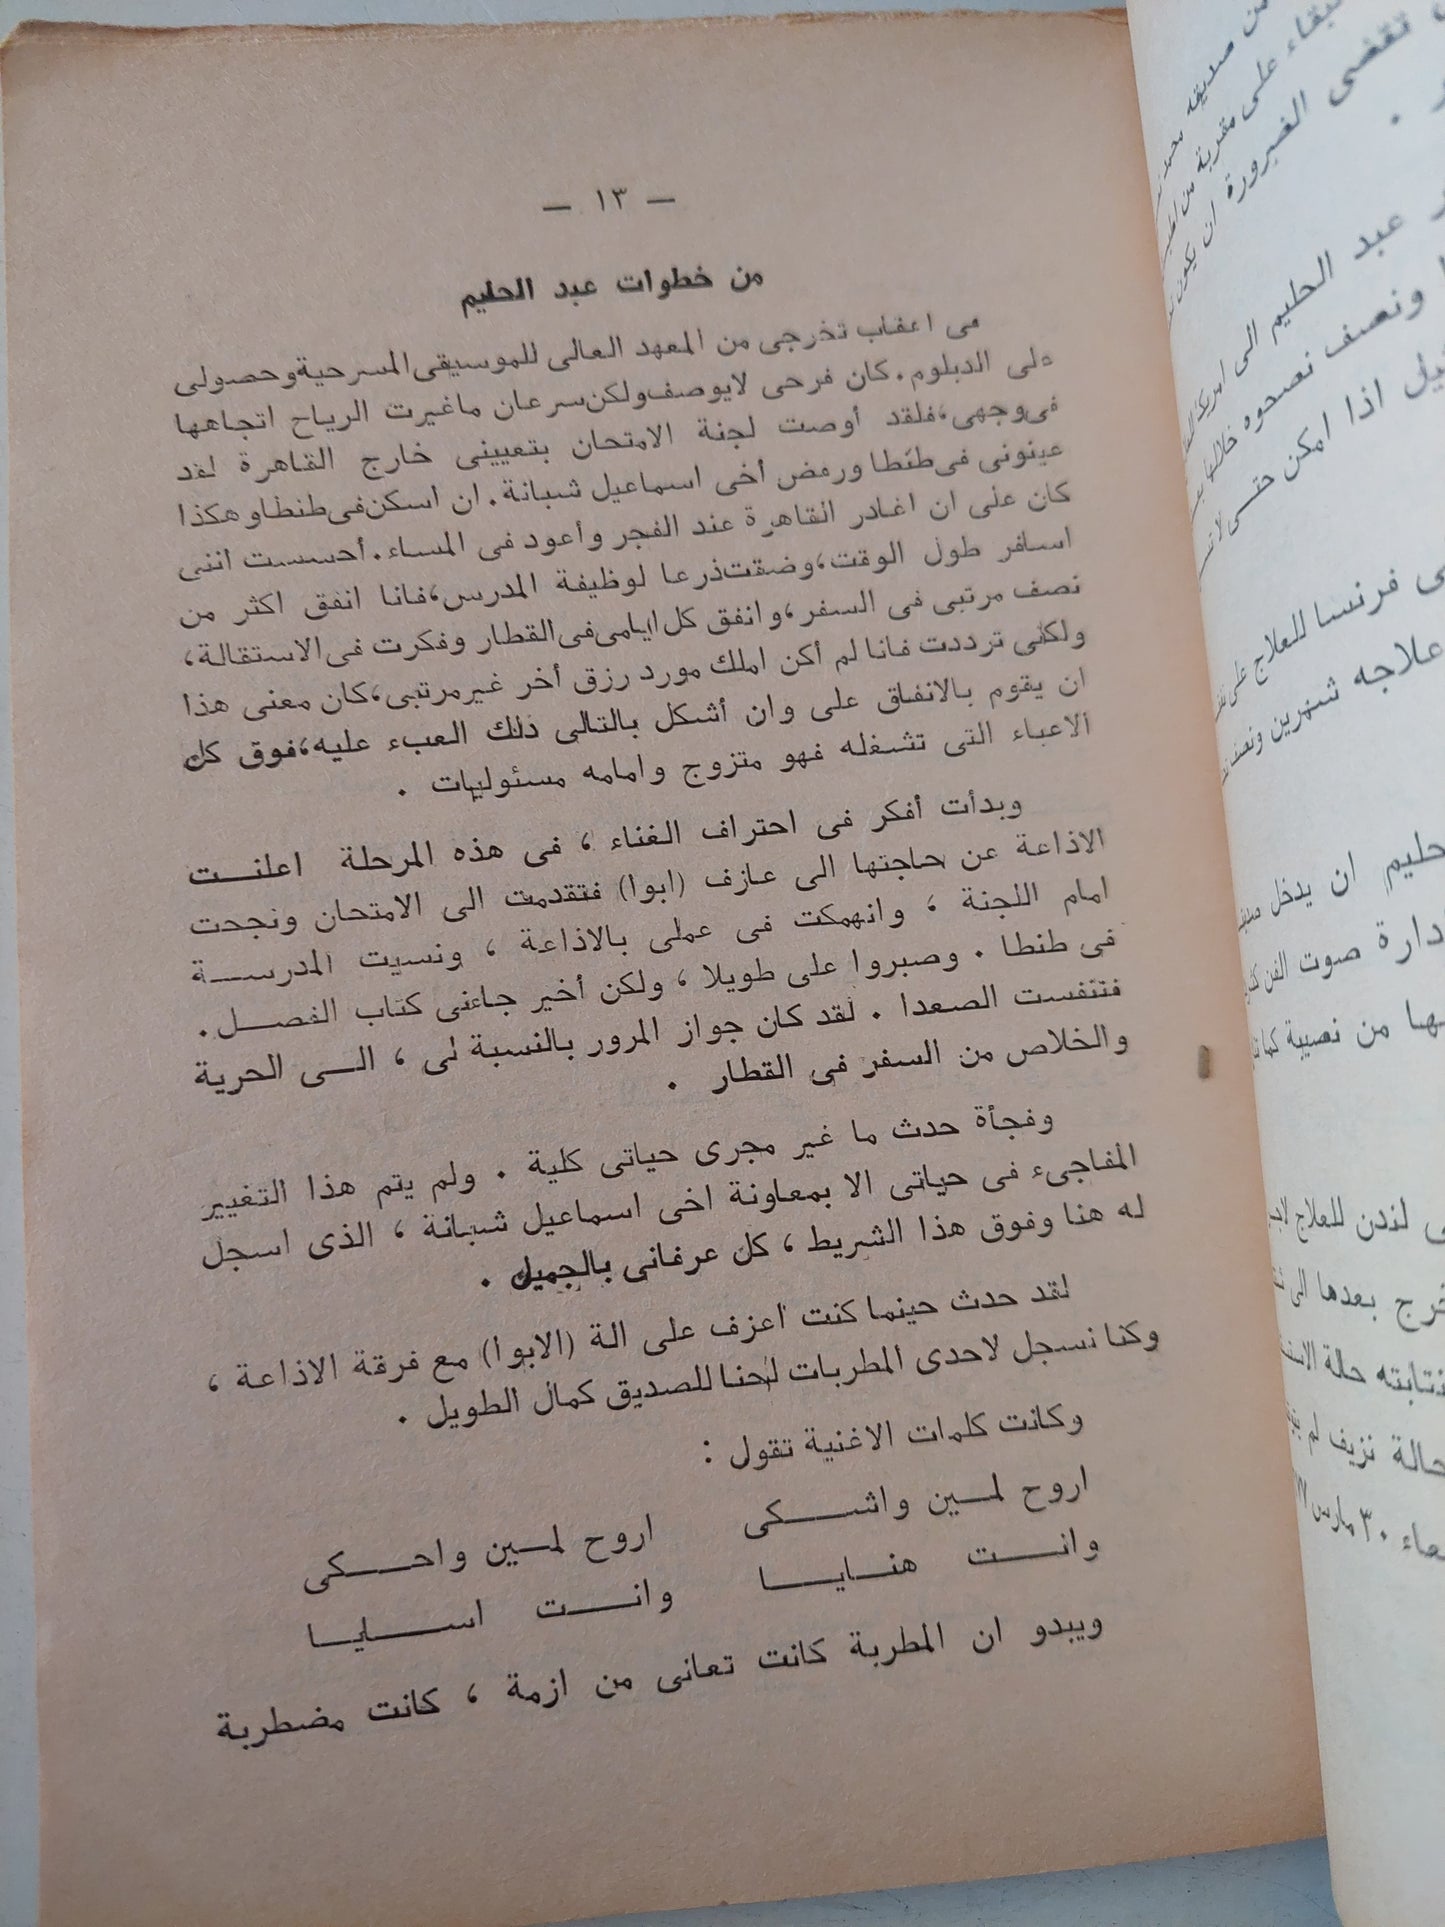 — ١٣ —
من خطوات عبد الحليم
فى اعقاب تخرجى من المعهد العالى للموسيقى المسرحية وحصولى
على الدبلوم . كان فرحى لايوصف ولكن سرعان ماغيرت الرياح اتجاهها
فى وجهى ، فلقد أوصت لجنة الامتحان بتعيينى خارج القاهرة لقد
عينونى فى طنطا ورفض أخى اسماعيل شبانة . ان اسكن فى طنطا وهكذا
كان على ان اغادر القاهرة عند الفجر وأعود فى المساء . أحسست اننى
اسافر طول الوقت ، وضقت ذرعا لوظيفة المدرس ، فانا انفق اكثر من
نصف مرتبى فى السفر ، وانفق كل ايامى فى القطار وفكرت فى الاستقالة ،
ولكنى ترددت فانا لم أكن املك مورد رزق أخر غير مرتبى ، كان معنى هذا
ان يقوم بالانفاق على وان أشكل بالتالى ذلك العبء عليه ، فوق كل
الاعباء التى تشغله فهو متزوج وامامه مسئوليات .
وبدأت أفكر فى احتراف الغناء ، فى هذه المرحلة اعلنـــت
الاذاعة عن حاجتها الى عازف (ابوا) فتقدمت الى الامتحان ونجحت
امام اللجنة ، وانهمكت فى عملى بالاذاعة ، ونسيت المدرســـة
فى طنطا . وصبروا على طويلا ، ولكن أخير جاءنى كتاب الفصـــل .
فتنفست الصعدا . لقد كان جواز المرور بالنسبة لى ، الـــى الحرية
والخلاص من السفر فى القطار .
وفجأة حدث ما غير مجرى حياتى كلية . ولم يتم هذا التغيير
المفاجىء فى حياتى الا بمعاونة اخى اسماعيل شبانة ، الذى اسجل
له هنا وفوق هذا الشريط ، كل عرفانى بالجميل .
لقد حدث حينما كنت اعزف على الة (الابوا) مع فرقة الاذاعة ،
وكنا نسجل لاحدى المطربات لحنا للصديق كمال الطويل .
وكانت كلمات الاغنية تقول :
اروح لمــين واشــــكى اروح لمــين واحــــكى
وانــــت هنــايــــا وانــــت اســــايــا
ويبدو ان المطربة كانت تعانى من ازمة ، كانت مضطربة
من صديقه محمد
البقاء على مقربة من
تقضى الضرورة ان يكون
.
عبد الحليم الى امريكا
ونصف نصحوه خلالها
اذا امكن حتى لا
فرنسا للعلاج على
علاجه شهرين ونصف
حليم ان يدخل
صوت الفن
من نصيبة
لندن للعلاج
بعدها الى
حالة
حالة نزيف لم
٣٠ مارس